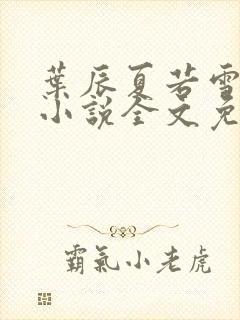 葉辰夏若雪
小說全文免
霸氣小老虎